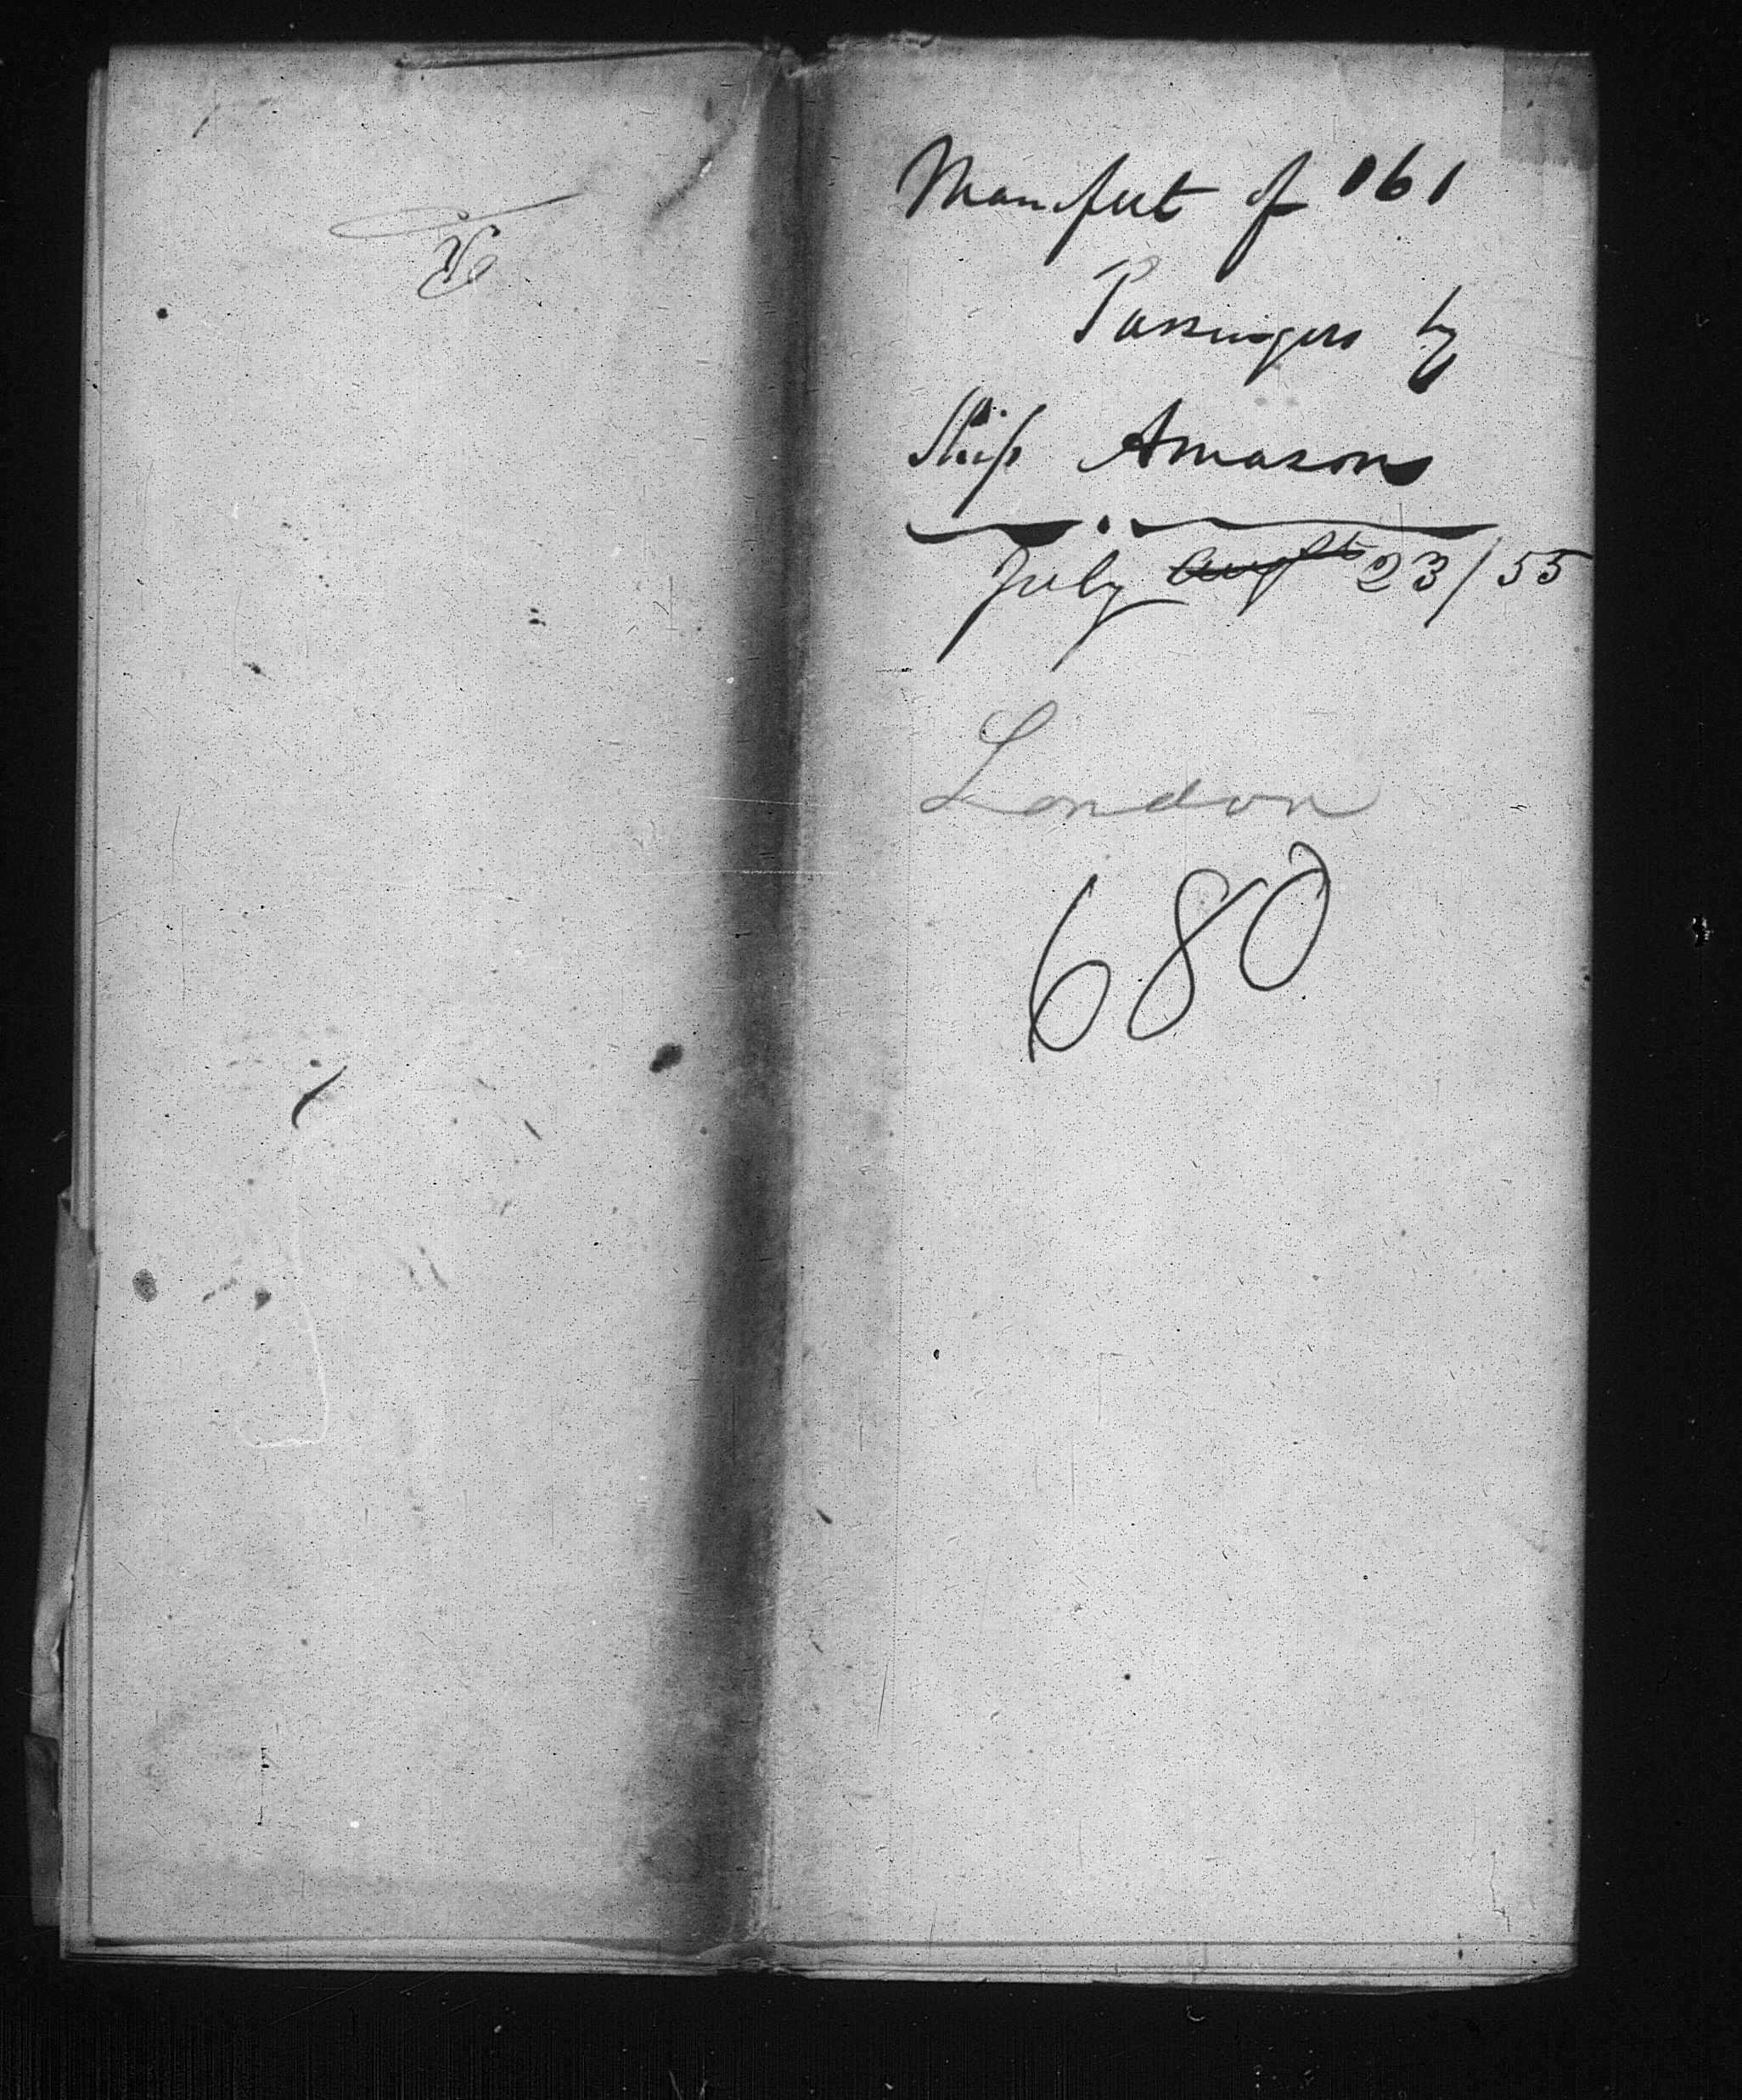 Manifest of 161
Passengers by
Ship Amazon
July Augst 23/55
London
680